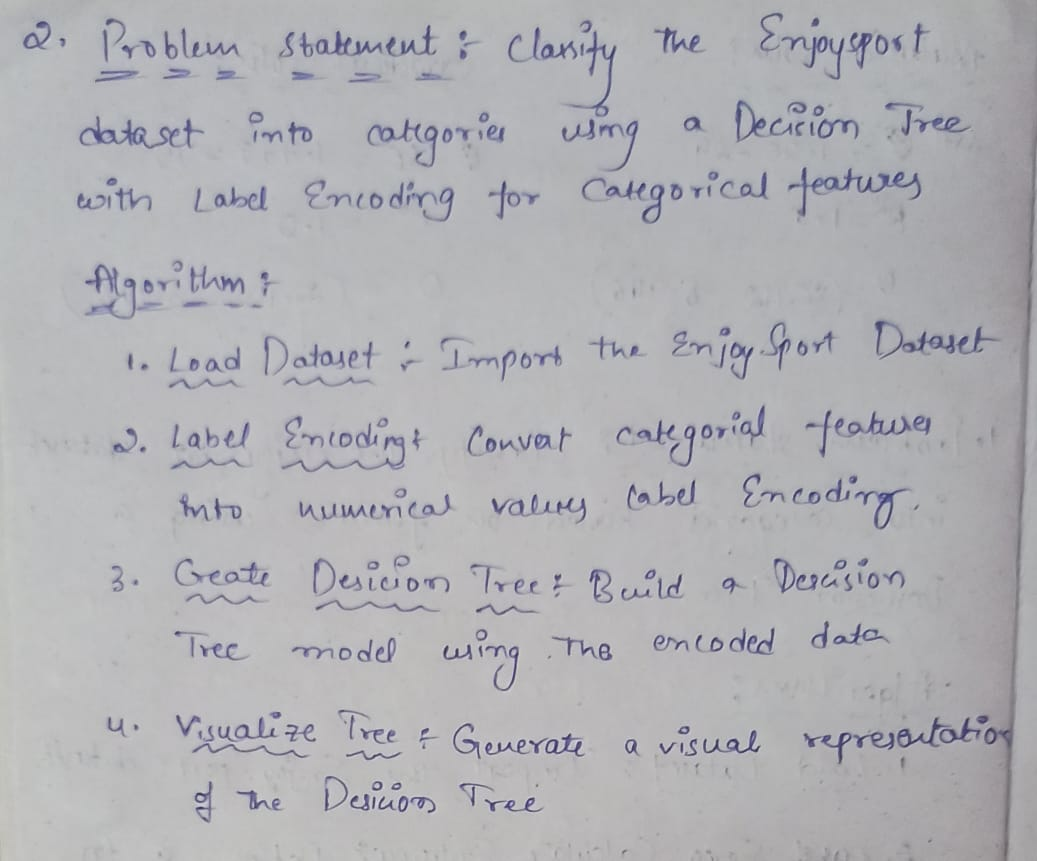 2. Problem Statement : Classify The Enjoysport
dataset into categories using a Decision Tree
with Label Encoding for Categorical features
Algorithm :
1. Load Dataset :- Import the Enjoy Sport Dataset
2. Label Encoding : Convert categorial features
into numerical values label Encoding.
3. Create Desicion Tree : Build a Descision
Tree model using The encoded data
4. Visualize Tree : Generate a visual representation
of The Desicion Tree